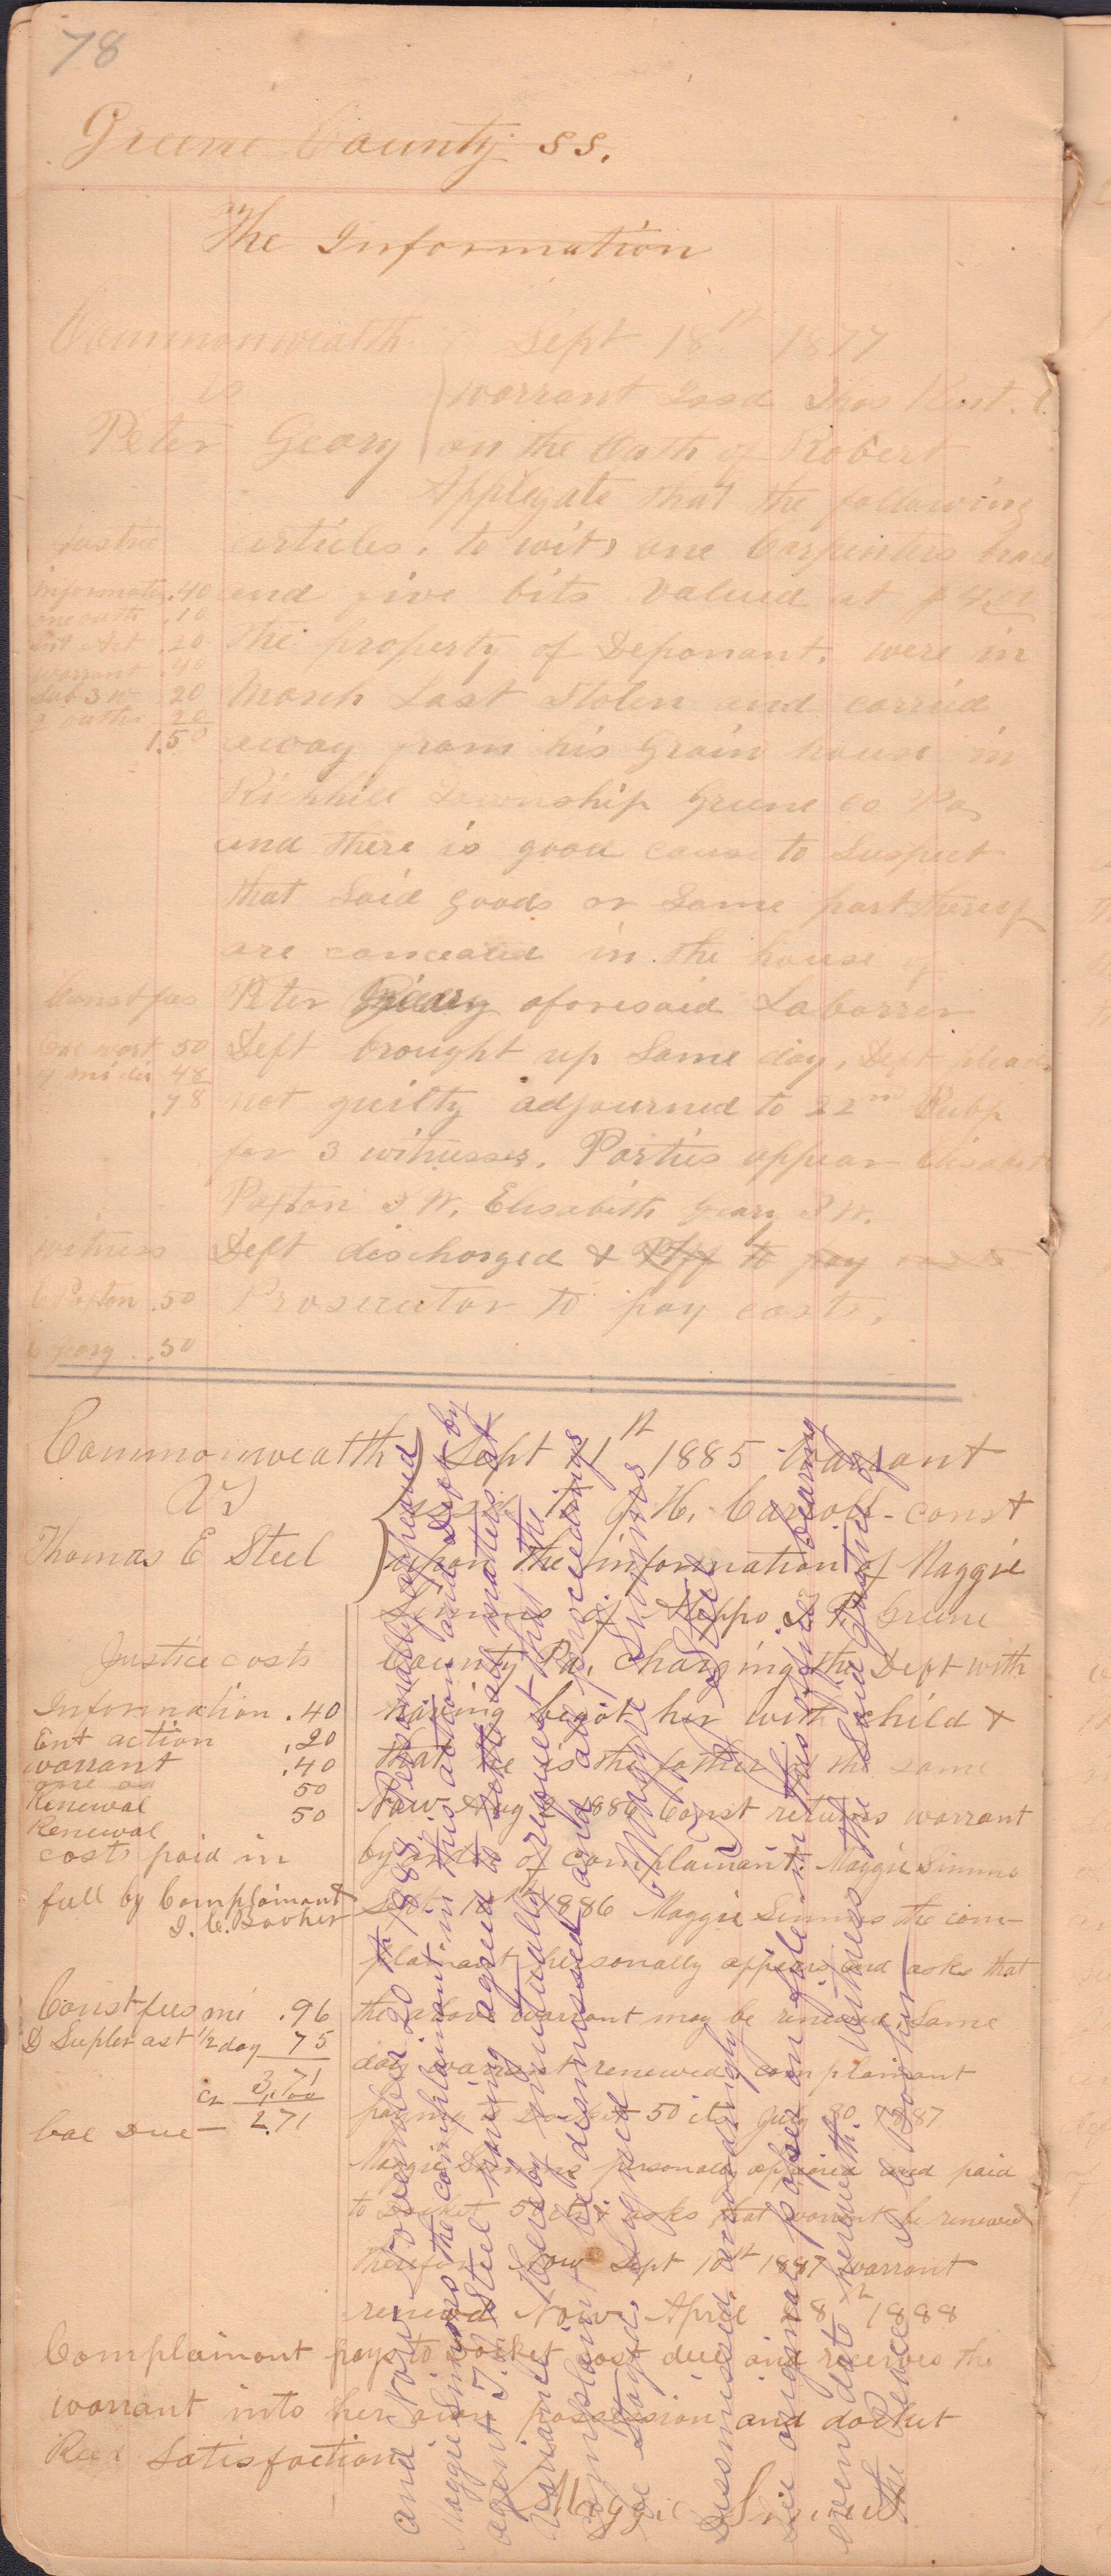 78
Greene County ss.
The Information
Commonwealth
vs
Peter Geary
Sept 18th 1877
warrant Issd Thos Kent.
on the Oath of Robert
Applegate that the following
articles, to wit, one Carpenters brace
and five bits valued at
the property of Deponant, were in
March Last Stolen and carried
away from his Grain house in
Richhill Township Greene Co Pa
and there is good cause to Suspect
that Said goods or Some part thereof
are concealed in the house of
Peter Geary aforesaid Laborrer
Deft brought up Same day, Deft pleads
not guilty adjourned to 22nd Subp
for 3 witnesses. Parties appear Elisabeth
Paxton S W. Elisabeth Geary S W.
Deft discharged & Ptff to pay costs
Prosecutor to pay costs.
Justice
informati .40
one oath .10
Ent Act .20
warrant .40
Sub 3 w 20
2 oaths 20
1.50
Const fees
Exe wart 50
mi cir 48
.98
witness
E Paxton .50
E Geary .50
Commonwealth
vs
Thomas E Steel
Sept 11th 1885 Warrant
issd to J H. Carroll const
upon the information of Maggie
Simms of Aleppo T P. Greene
County Pa, charging the Deft with
having begot her with child &
that he is the father of the same
Now Aug 1886 Const returns warrant
by order of complainant Maggie Simms
Sept 10th 1886 Maggie Simms the com-
plainant personally appears and asks that
the above warrant may be renewed, Same
day warrant renewed complainant
paying Docket 50 cts July 30 1887
Maggie Simms personally appeared and paid
to Docket 50 cts & asks that warrant be renewed
therefore Now Sept 10th 1887 warrant
renewed Now April 28th 1888
Complainant pays to docket cost due and receives the
warrant into her own possession and docket
Recd Satisfaction
Maggie Simms
Justice costs
Information .40
Ent action .20
warrant .40
one oa
Renewal 50
Renewal 50
costs paid in
full by Complainant
J. C. Booher
Const fees mi .96
D Supler ast 1/2 day 75
3,71
Cr 1,00
bal Due — 2.71
and Now November 20th 1888 Personally appeared
Maggie Simms the complainant in this action and Deft by
agent T. Steel having agreed to settle all matters at
Variance hereby mutually request that the
complaint be dismissed and all proceedings
be Stayed. Signed Maggie Simmns
Steel
Dissmissed accordingly
See original paper on file in this office bearing
even date herewith. Witness the Said Justice of
the Peace J C Booher